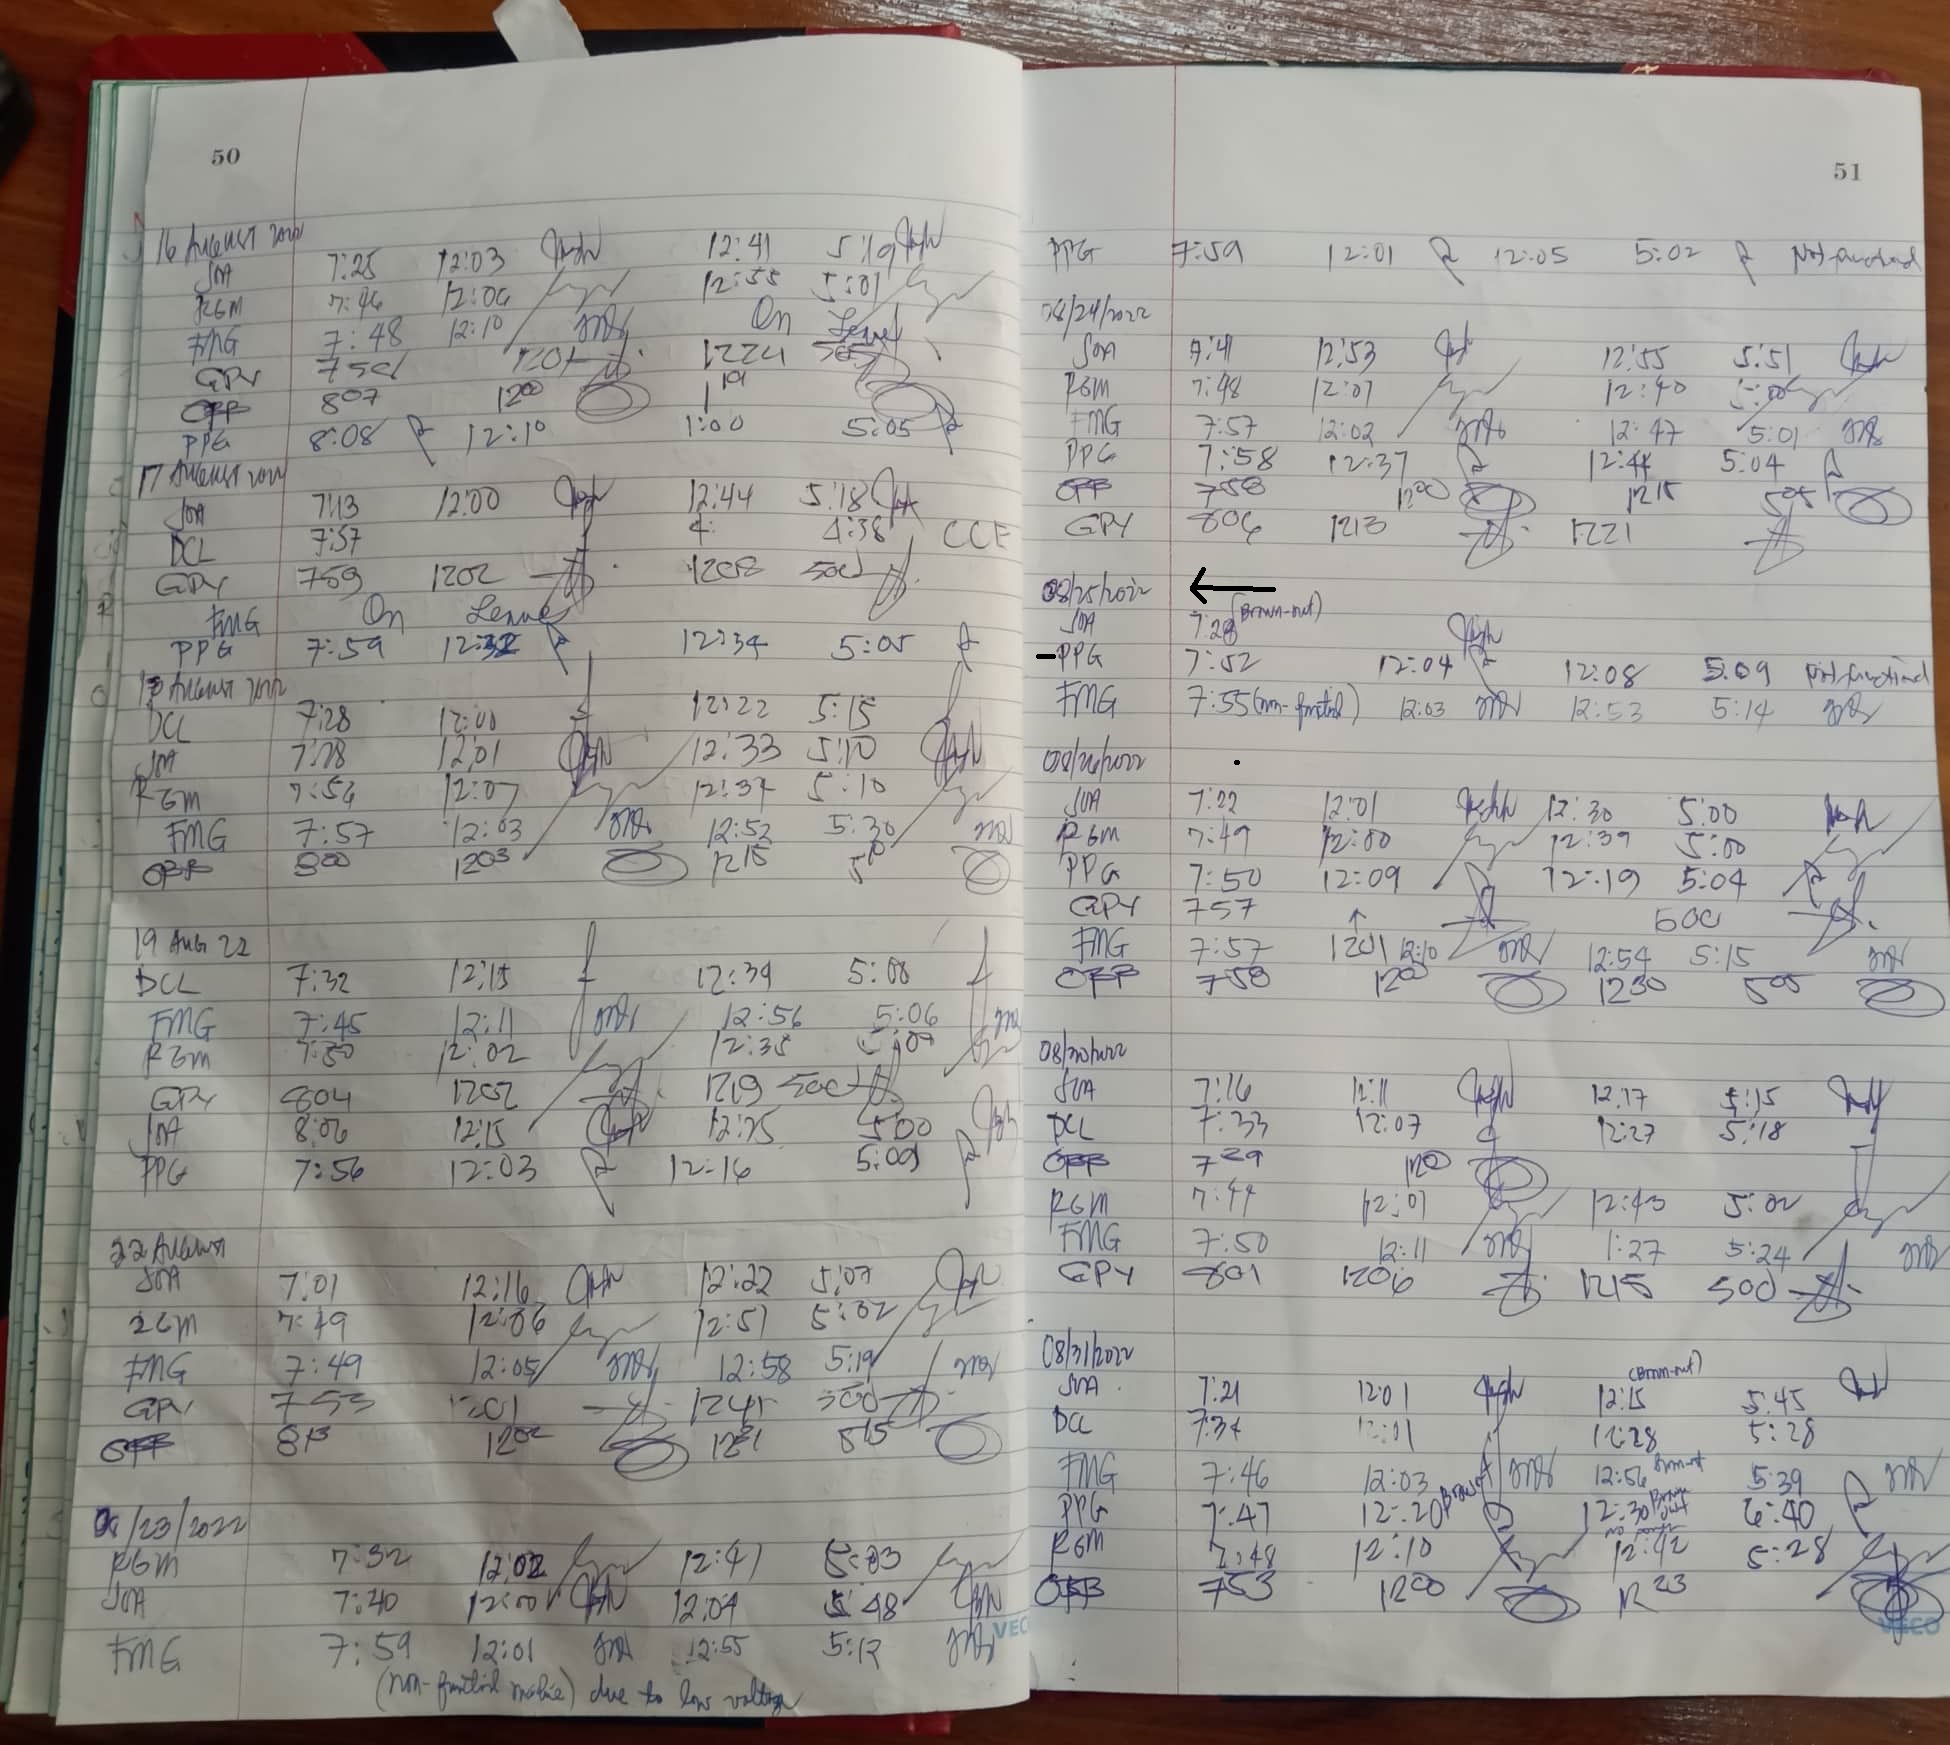 50
16 August 2022
JOA 7:25 12:03 12:41 5:19
RGM 7:46 12:06 12:55 5:01
FMG 7:48 12:10 On Leave
GPY 1201 1224
OFF 807 1200 1
PPG 8:08 12:10 1:00 5:05
17 August 2022
JOA 7:13 12:00 12:44 5:18
DCL 7:57 4: 4:38 CCE
GPY 759 1202 1208 500
FMG On Leave
PPG 7:59 12:32 12:34 5:05
August 2022
DCL 7:28 12:00 12:22 5:15
JOA 7:28 12:01 12:33 5:10
RGM 7:54 12:07 12:37 5:10
FMG 7:57 12:03 12:52 5:30
OFF 800 1203 1215 510
19 Aug 22
DCL 7:32 12:15 12:39 5:08
FMG 7:45 12:11 12:56 5:06
RGM 7:50 12:02 12:38 5:07
GPY 804 1202 1219 500
JOA 8:06 12:15 12:25 5:00
PPG 7:56 12:03 12:16 5:09
22 August
JOA 7:01 12:16 12:22 5:07
RGM 7:49 12:06 12:51 5:02
FMG 7:49 12:05 12:58 5:19
GPY 753 1201 1245 500
OFF 813 1202 515
/23/2022
RGM 7:32 12:02 12:41 5:03
JOA 7:40 12:00 12:04 5:48
FMG 7:59 12:01 12:55 5:12
(non-functional machine) due to low voltage
51
PPG 7:59 12:01 12:05 5:02 Not functional
08/24/2022
JOA 7:41 12:53 12:55 5:51
RGM 7:48 12:01 12:40 5:00
FMG 7:57 12:02 12:47 5:01
PPG 7:58 12:37 12:44 5:04
OFF 758 1200 1215 505
GPY 806 1213 1221
08/25/2022
JOA 7:28 (Brown-out)
PPG 7:52 12:04 12:08 5:09 Not functional
FMG 7:55 (non-functional) 12:03 12:53 5:14
08/26/2022
JOA 7:22 12:01 12:30 5:00
RGM 7:49 12:00 12:39 5:00
PPG 7:50 12:09 12:19 5:04
GPY 757 500
FMG 7:57 1201 12:10 12:54 5:15
OFF 758 1200 1230 505
08/30/2022
JOA 7:16 12:11 12:17 5:15
DCL 7:33 12:07 12:27 5:18
OFF 739 1200
RGM 7:44 12:01 12:43 5:02
FMG 7:50 12:11 1:27 5:24
GPY 801 1206 1215 500
08/31/2022
(Brown-out)
JOA 7:21 12:01 12:15 5:45
DCL 7:34 12:01 12:28 5:28
FMG 7:46 12:03 12:56 Brown-out 5:39
PPG 7:47 12:20 Brownout 12:30 Brown out 6:40
RGM 7:48 12:10 12:42 5:28
OFF 753 1200 1223
VECO
VECO